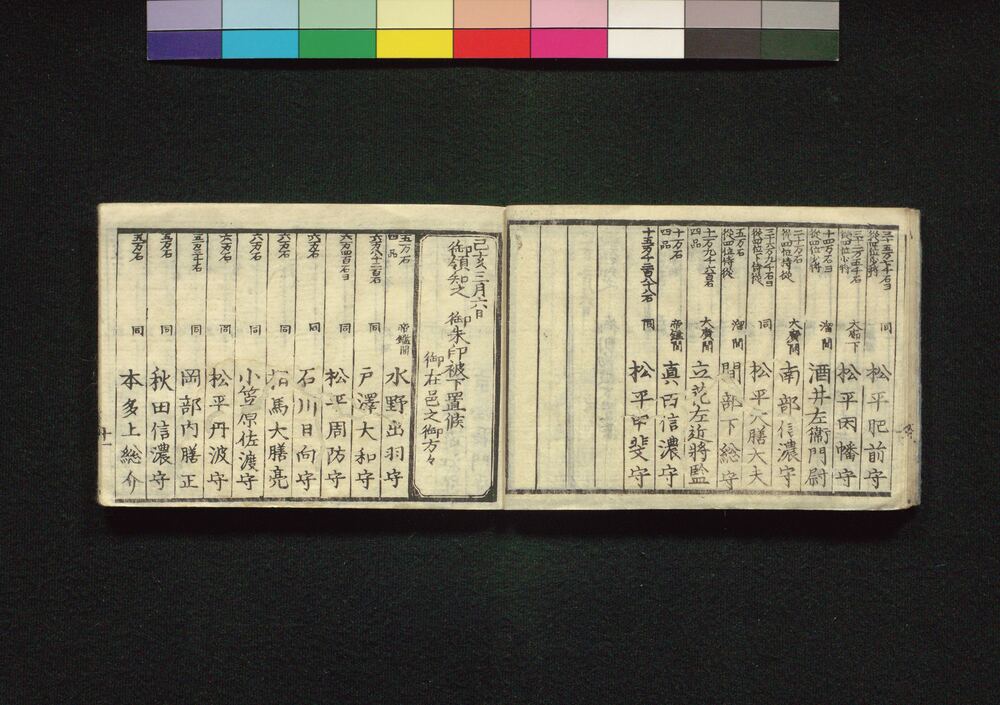 三十五万七千石ヨ
従四位少将
同
松平肥前守
三十二万五千石
従四位少将
大廊下
松平因幡守
十四万石ヨ
従四位少将
溜間
酒井左衞門尉
二十万石
従四位侍従
大廣間
南部信濃守
従四位下侍従
同
松平大膳大夫
五万石
従四位侍従
溜間
間部下総守
十一万九千六百石
四品
大廣間
立花左近将監
十万石
四品
帝鑑間
真田信濃守
同
松平甲斐守
己亥三月六日
御領知之御朱印被下置候
御在邑之御方々
五万石
四品
帝鑑間
水野出羽守
六万八千二百石
同
戸澤大和守
六万四百石ヨ
同
松平周防守
六万石
同
石川日向守
六万石
同
相馬大膳亮
六万石
同
小笠原佐渡守
六万石
同
松平丹波守
五万三千石
同
岡部内膳正
五万石
同
秋田信濃守
五万石
同
本多上総介